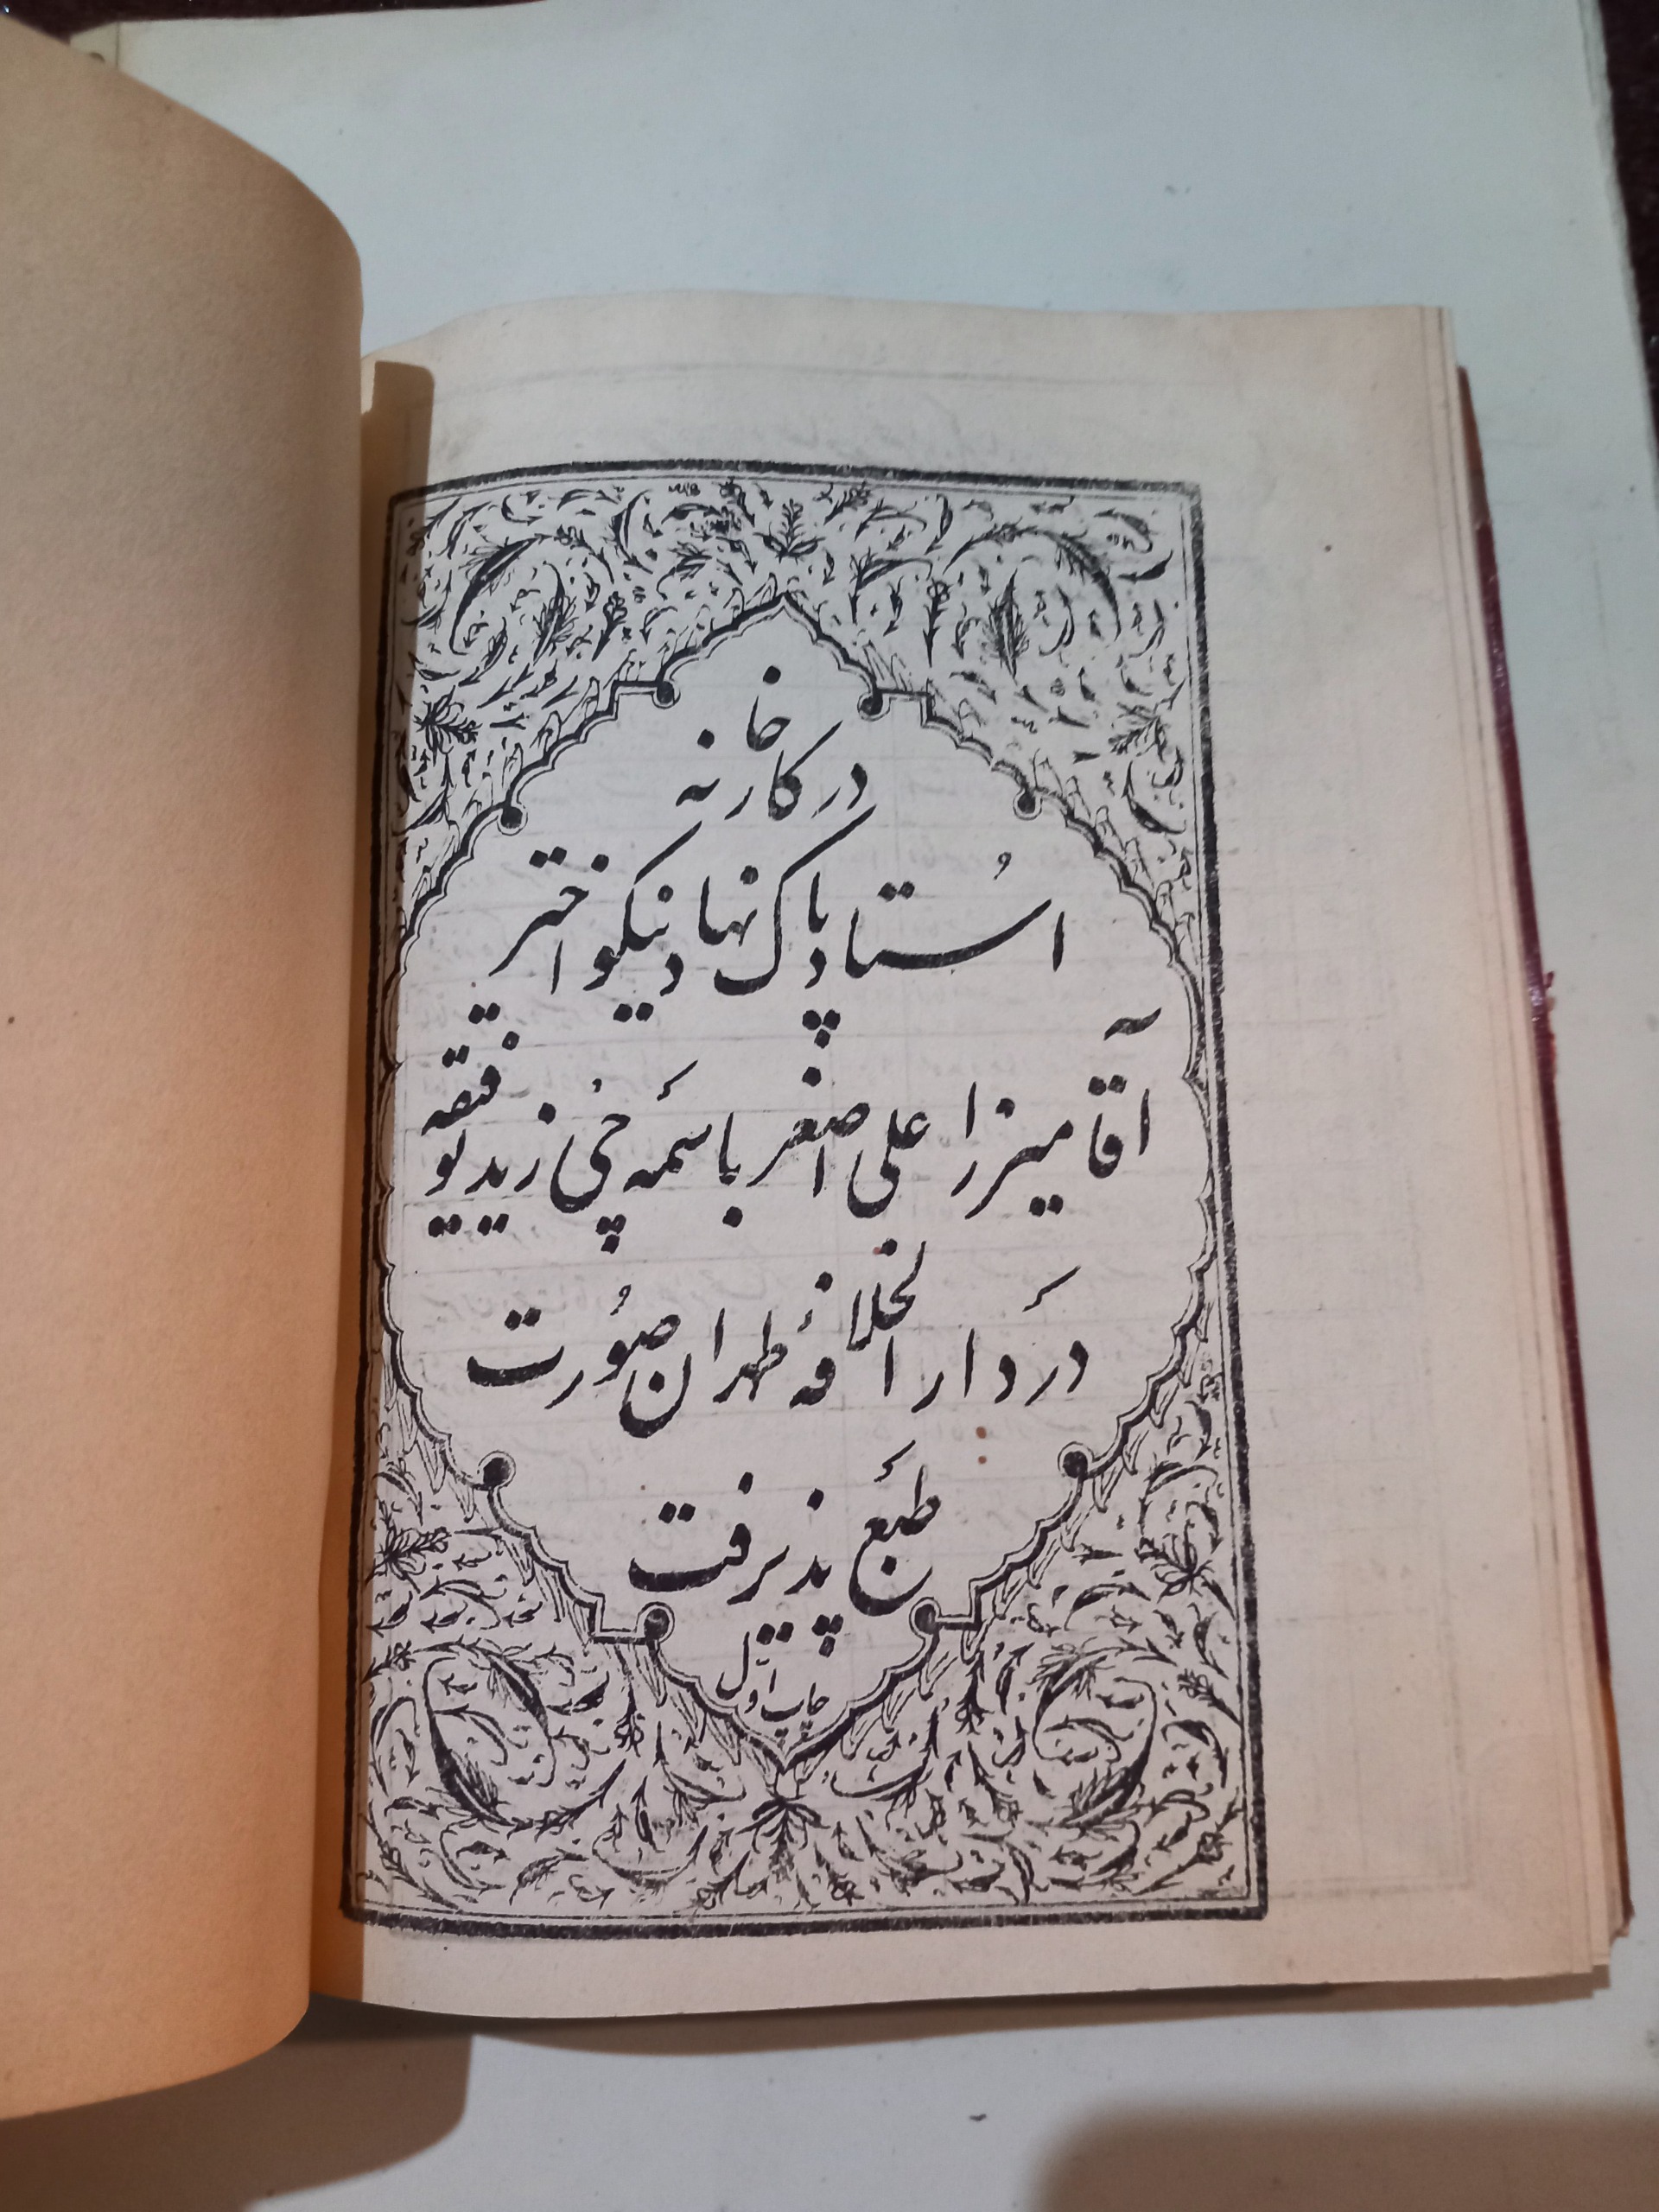 در کارخانه
اُستاد پاک نهاد نیکو اختر
آقا میرزا علی اصغر باسَمه چی زید توفیقه
درَ دار الخلافهٔ طهران صُورت
طبَع پذیرفت
چاپ اوّل